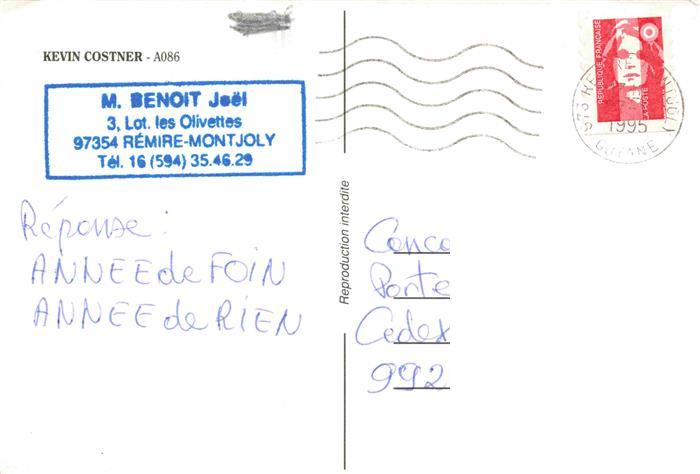 KEVIN COSTNER - A086
M. BENOIT Joël
3, Lot. les Olivettes
97354 RÉMIRE-MONTJOLY
Tél. 16 (594) 35.46.29
Réponse :
ANNEE de FOIN
ANNEE de RIEN
Reproduction interdite
REPUBLIQUE FRANÇAISE
LA POSTE
973
1995
GUYANE
Conco
Porte
Cedex
992